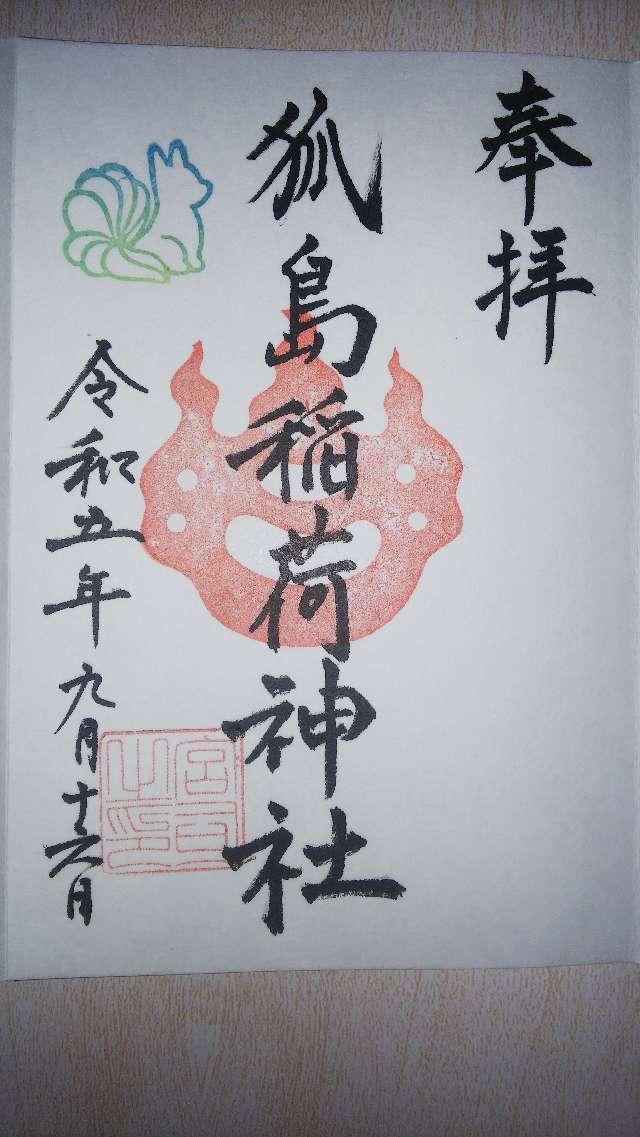 奉拝
狐島稲荷神社
令和五年九月十六日
宮司之印